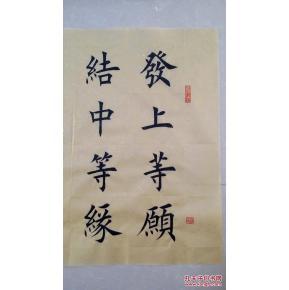 發上等願
結中等緣